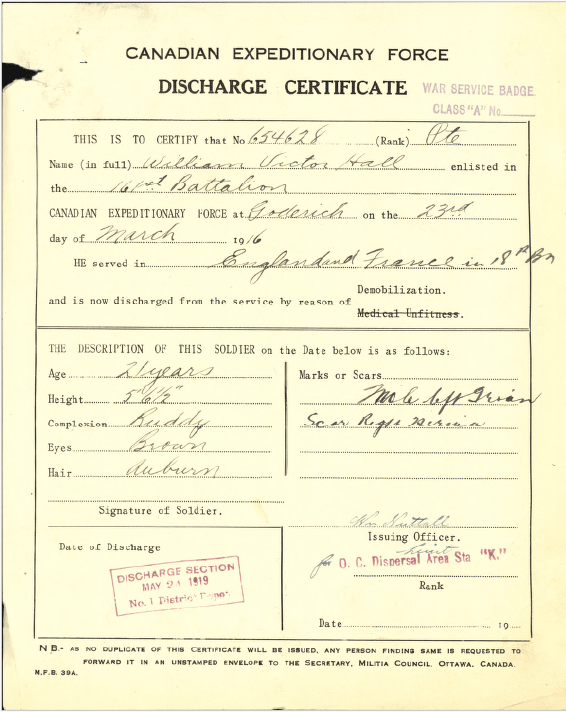 CANADIAN EXPEDITIONARY FORCE
DISCHARGE CERTIFICATE
WAR SERVICE BADGE
CLASS "A" No
THIS IS TO CERTIFY that No 654628 (Rank) Pte
Name (in full) William Victor Hall enlisted in
the 161st Battalion
CANADIAN EXPEDITIONARY FORCE at Goderich on the 23rd
day of March 1916
HE served in England and France in 18th Bn
and is now discharged from the service by reason of
Demobilization.
Medical Unfitness.
THE DESCRIPTION OF THIS SOLDIER on the Date below is as follows:
Age 21 years
Height 5' 6½"
Complexion Ruddy
Eyes Brown
Hair Auburn
Marks or Scars
Mole left
Scar Right
Signature of Soldier.
Issuing Officer.
Lieut
for O. C. Dispersal Area Sta "K."
Rank
Date of Discharge
DISCHARGE SECTION
MAY 24 1919
No. 1 District Depot
Date 19
NB.- AS NO DUPLICATE OF THIS CERTIFICATE WILL BE ISSUED, ANY PERSON FINDING SAME IS REQUESTED TO
FORWARD IT IN AN UNSTAMPED ENVELOPE TO THE SECRETARY, MILITIA COUNCIL, OTTAWA, CANADA.
M.F.B. 39A.